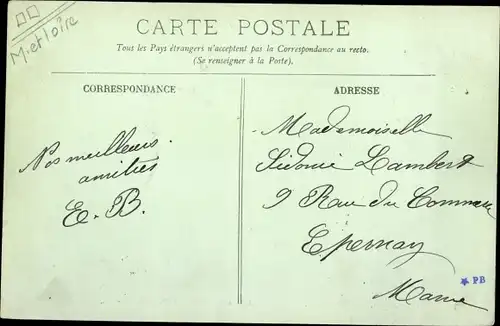 M. et Loire
CARTE POSTALE
Tous les Pays étrangers n'acceptent pas la Correspondance au recto.
(Se renseigner à la Poste).
CORRESPONDANCE
ADRESSE
Nos meilleures
amitiés
E. B.
Mademoiselle
Sidonie Lambert
9 Rue du Commerce
Epernay
Marne
PB